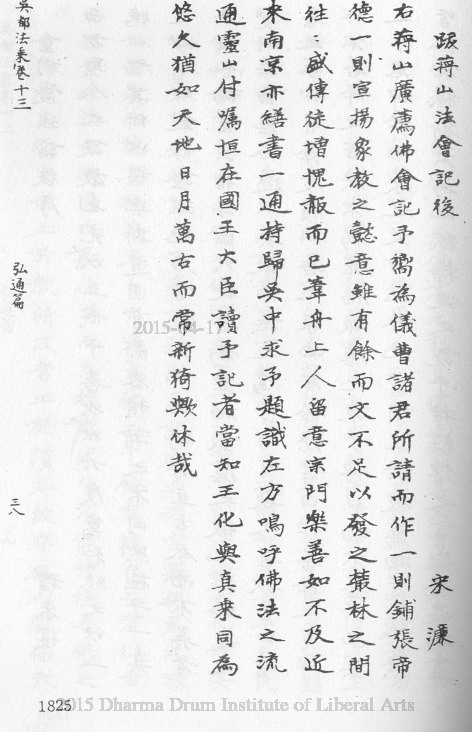 跋蔣山法會記後
宋濂
右蔣山廣薦佛會記予嚮為儀曹諸君所請而作一則鋪張帝
德一則宣揚象教之懿意雖有餘而文不足以發之叢林之間
往〻盛傳徒增愧赧而已葦舟上人留意宗門樂善如不及近
來南京亦繕書一通持歸吳中求予題識左方嗚呼佛法之流
通靈山付囑恒在國王大臣讀予記者當知王化與真乘同為
悠久猶如天地日月萬古而常新猗歟休哉
吳都法乘卷十三
弘通篇
三八
1825
2015 Dharma Drum Institute of Liberal Arts